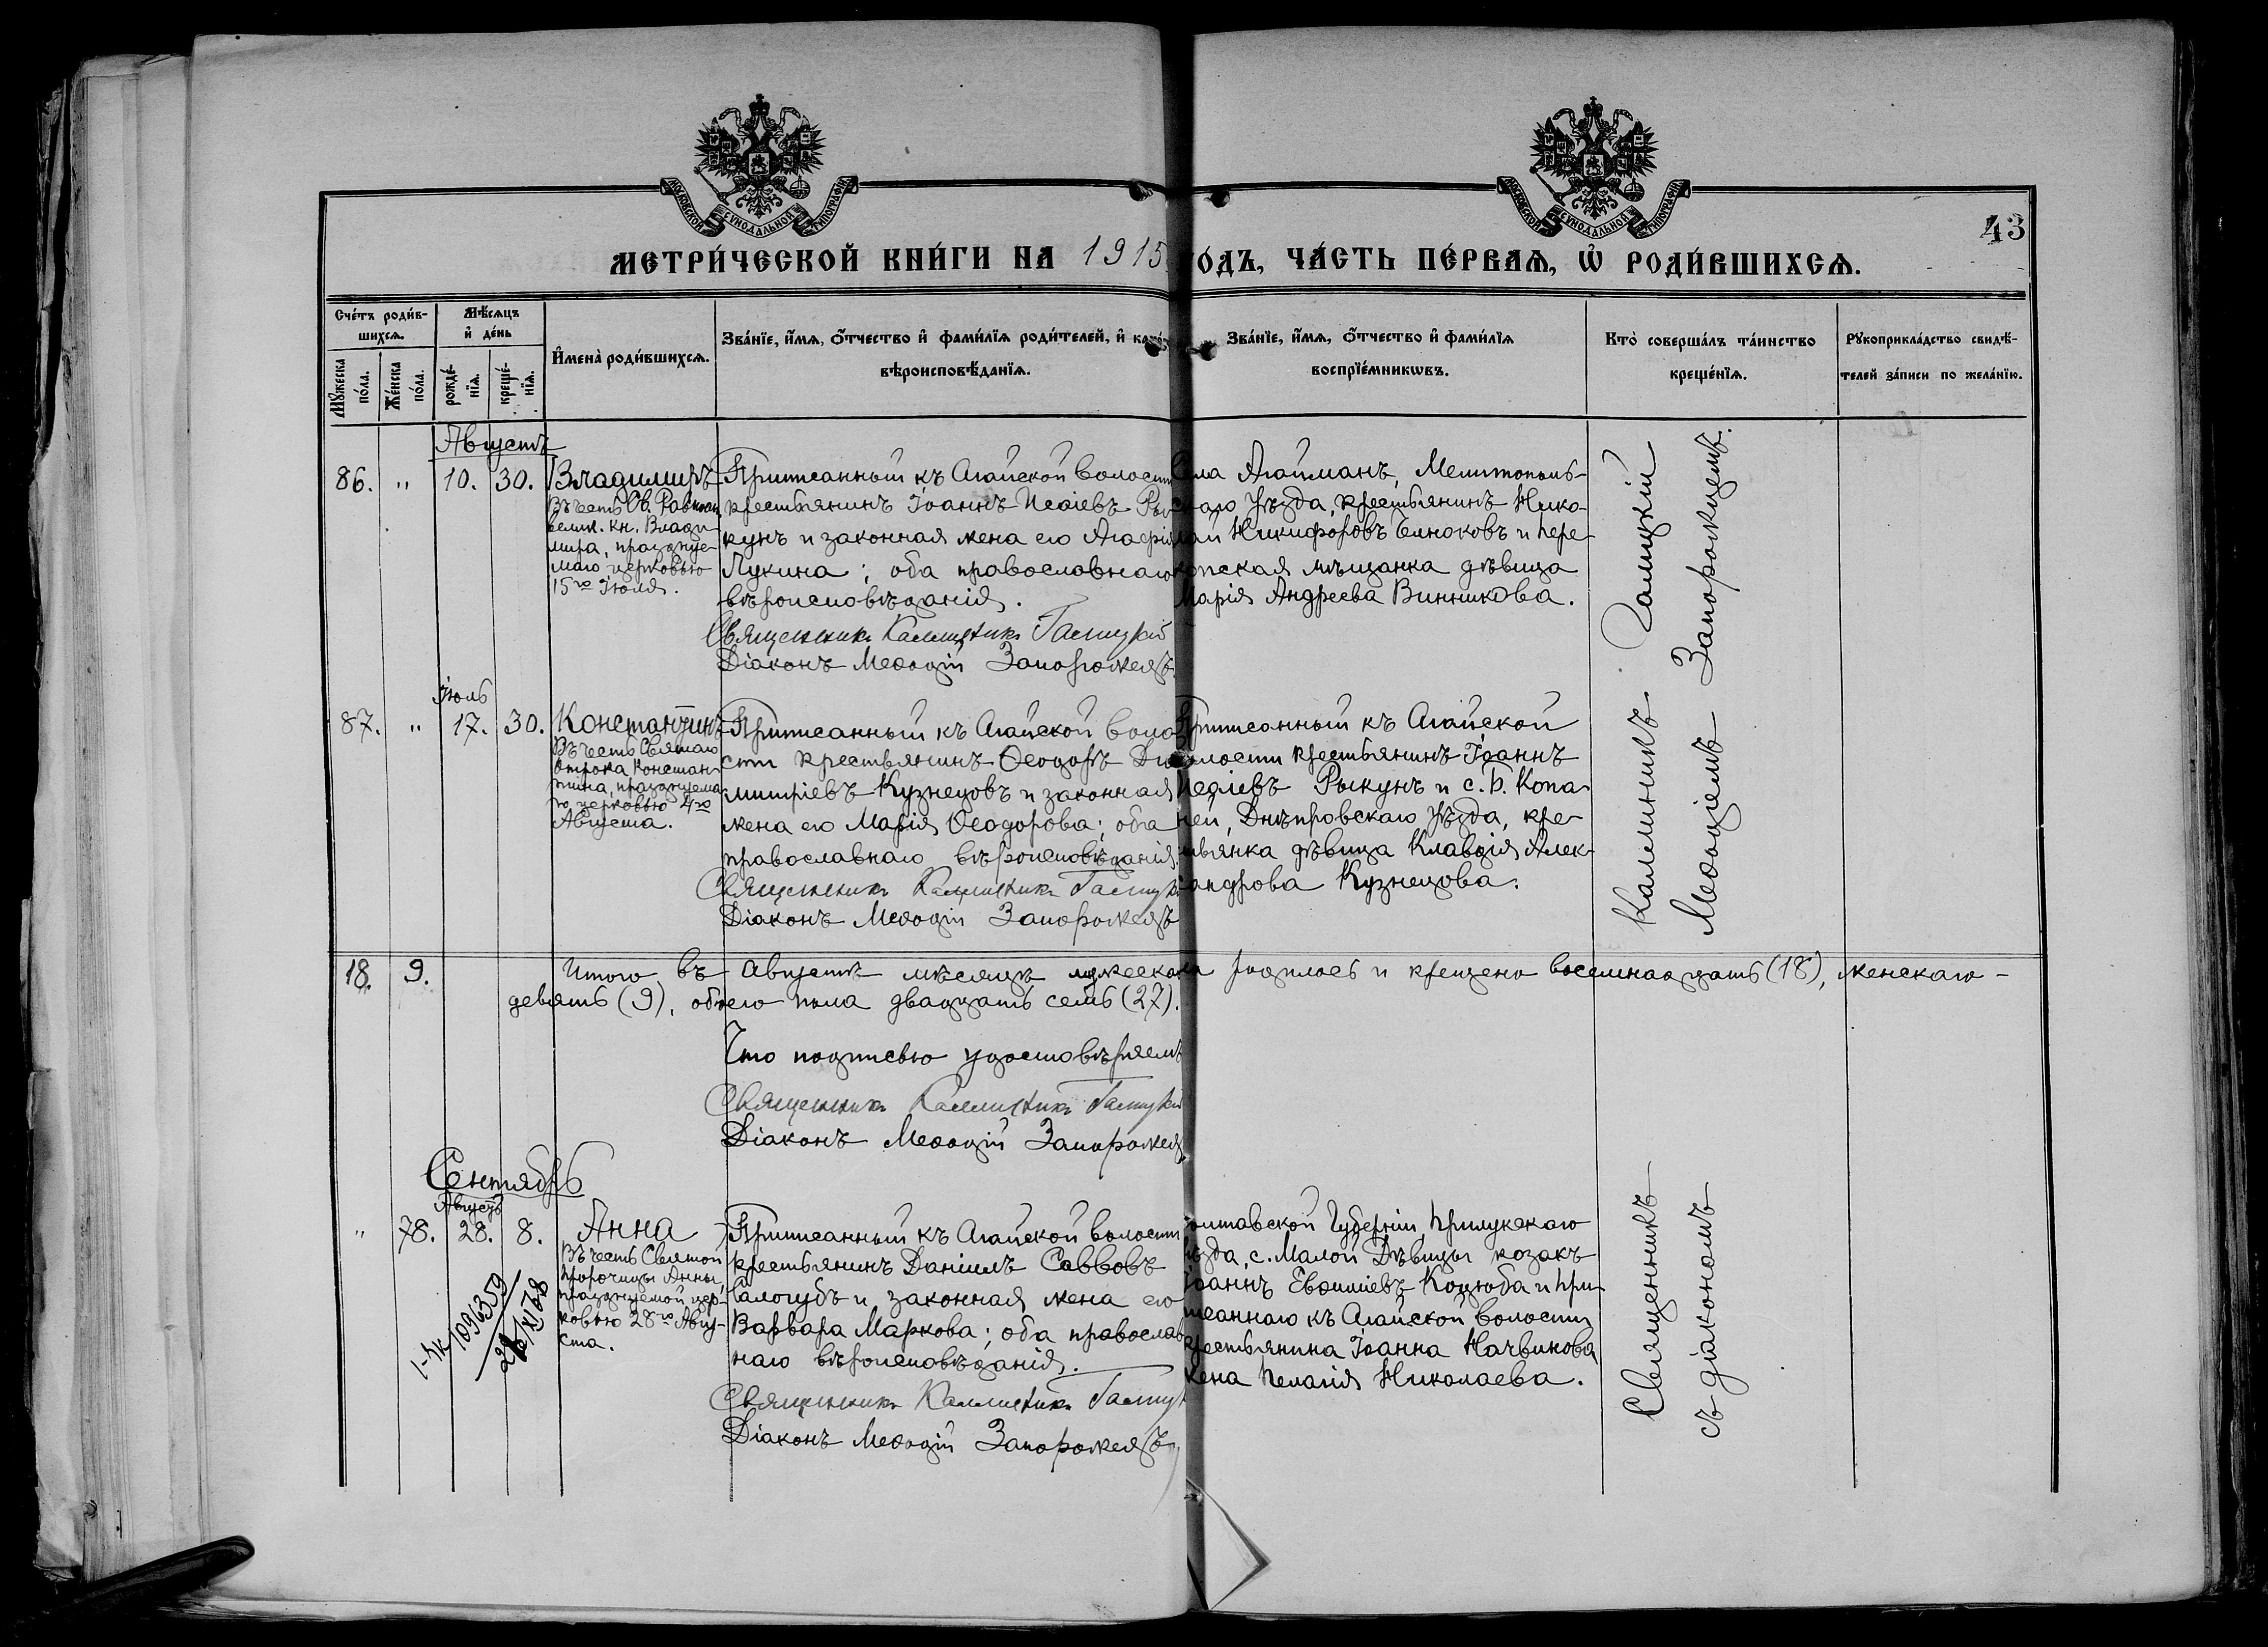 МОСКОВСКОЙ СѴНОДАЛЬНОЙ ТИПОГРАФІИ
МОСКОВСКОЙ СѴНОДАЛЬНОЙ ТИПОГРАФІИ
43
МЕТРИ́ЧЕСКОЙ КНИ́ГИ НА 1915
ОДЪ, ЧА́СТЬ ПЕ́РВАѦ, Ѡ҆ РОДИ́ВШИХСѦ.
Сче́тъ роди́в-
шихсѧ.
Мѣ́сѧцъ
и҆ де́нь
Мꙋ́жеска
по́ла.
Же́нска
по́ла.
рожде́-
нїѧ.
креще́-
нїѧ.
И҆мена̀ роди́вшихсѧ.
Зва́нїе, и҆́мѧ, ѻ҆́тчество и҆ фами́лїѧ роди́телей, и҆
вѣроисповѣ́данїѧ.
Зва́нїе, и҆́мѧ, ѻ҆́тчество и҆ фами́лїѧ
воспрїе́мникѡвъ.
Кто̀ соверша́лъ та́инство
креще́нїѧ.
Рꙋкоприкла́дство свидѣ́-
телей за́писи по жела́нїю.
Августъ
86. " 10. 30. Владиміръ
Въ честь Св. Равноап.
велик. кн. Влади-
міра, празднуе-
маго церковью
15го Іюля.
Приписанный къ Агайской волости
крестьянинъ Іоаннъ Исаіевъ Ры-
кунъ и законная жена его Агафія
Лукина; оба православнаго
вѣроисповѣданія.
Священникъ Каллиникъ Галицкій
Діаконъ Меѳодій Запорожецъ
Села Агайманъ, Мелитополь-
скаго уѣзда, крестьянинъ Нико-
лай Никифоровъ и Пере-
копская мѣщанка дѣвица
Марія Андреева Винникова.
Каллиникъ Галицкій
Меѳодіемъ Запорожцемъ.
Іюль
87. " 17. 30. Константинъ
Въ честь Святаго
Отрока Констан-
тина, празднуема-
го церковью 4го
Августа.
Приписанный къ Агайской воло-
сти крестьянинъ Ѳеодоръ Ди-
митріевъ Кузнецовъ и законная
жена его Марія Ѳеодорова; оба
православнаго вѣроисповѣданія.
Священникъ Каллиникъ Галицкій
Діаконъ Меѳодій Запорожецъ
Приписанный къ Агайской
волости крестьянинъ Іоаннъ
Исаіевъ Рыкунъ и с. Б. Копа-
ней, Днѣпровскаго уѣзда, кре-
стьянка дѣвица Клавдія Алек-
сандрова Кузнецова.
18. 9. Итого въ Августѣ мѣсяцѣ мужескаго родилось и крещено восемнадцать (18), женскаго -
девять (9), обоего пола двадцать семь (27).
Что подписью удостовѣряемъ
Священникъ Каллиникъ Галицкій
Діаконъ Меѳодій Запорожецъ
Сентябрь
Августъ
" 78. 28. 8. Анна
Въ честь Святой
Пророчицы Анны,
празднуемой цер-
ковью 28го Авгу-
ста.
1096359
Приписанный къ Агайской волости
крестьянинъ Даніилъ Саввовъ
Балогубъ и законная жена его
Варвара Маркова; оба православ-
наго вѣроисповѣданія.
Священникъ Каллиникъ Галицкій
Діаконъ Меѳодій Запорожецъ
Полтавской Губерніи, Прилукскаго
уѣзда, с. Малой Дѣвицы козакъ
Іоаннъ Евѳиміевъ Коцюба и при-
писаннаго къ Агайской волости
крестьянина Іоанна Начвинова
жена Пелагія Николаева.
Священникъ
съ діакономъ